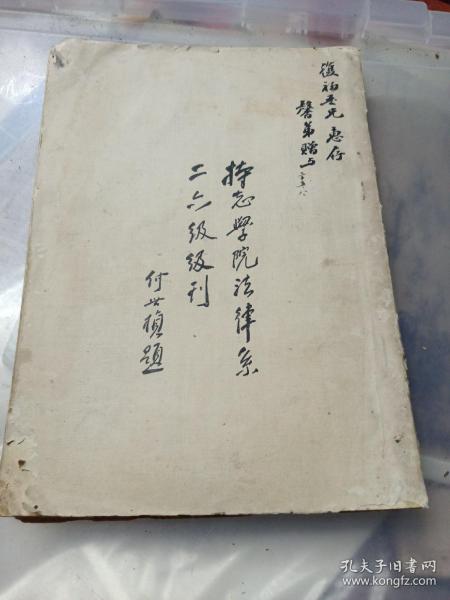 復初吾兄 惠存
馨弟贈
持志學院法律系
二六級級刊
何世楨題
孔夫子旧书网
www.kongfz.com